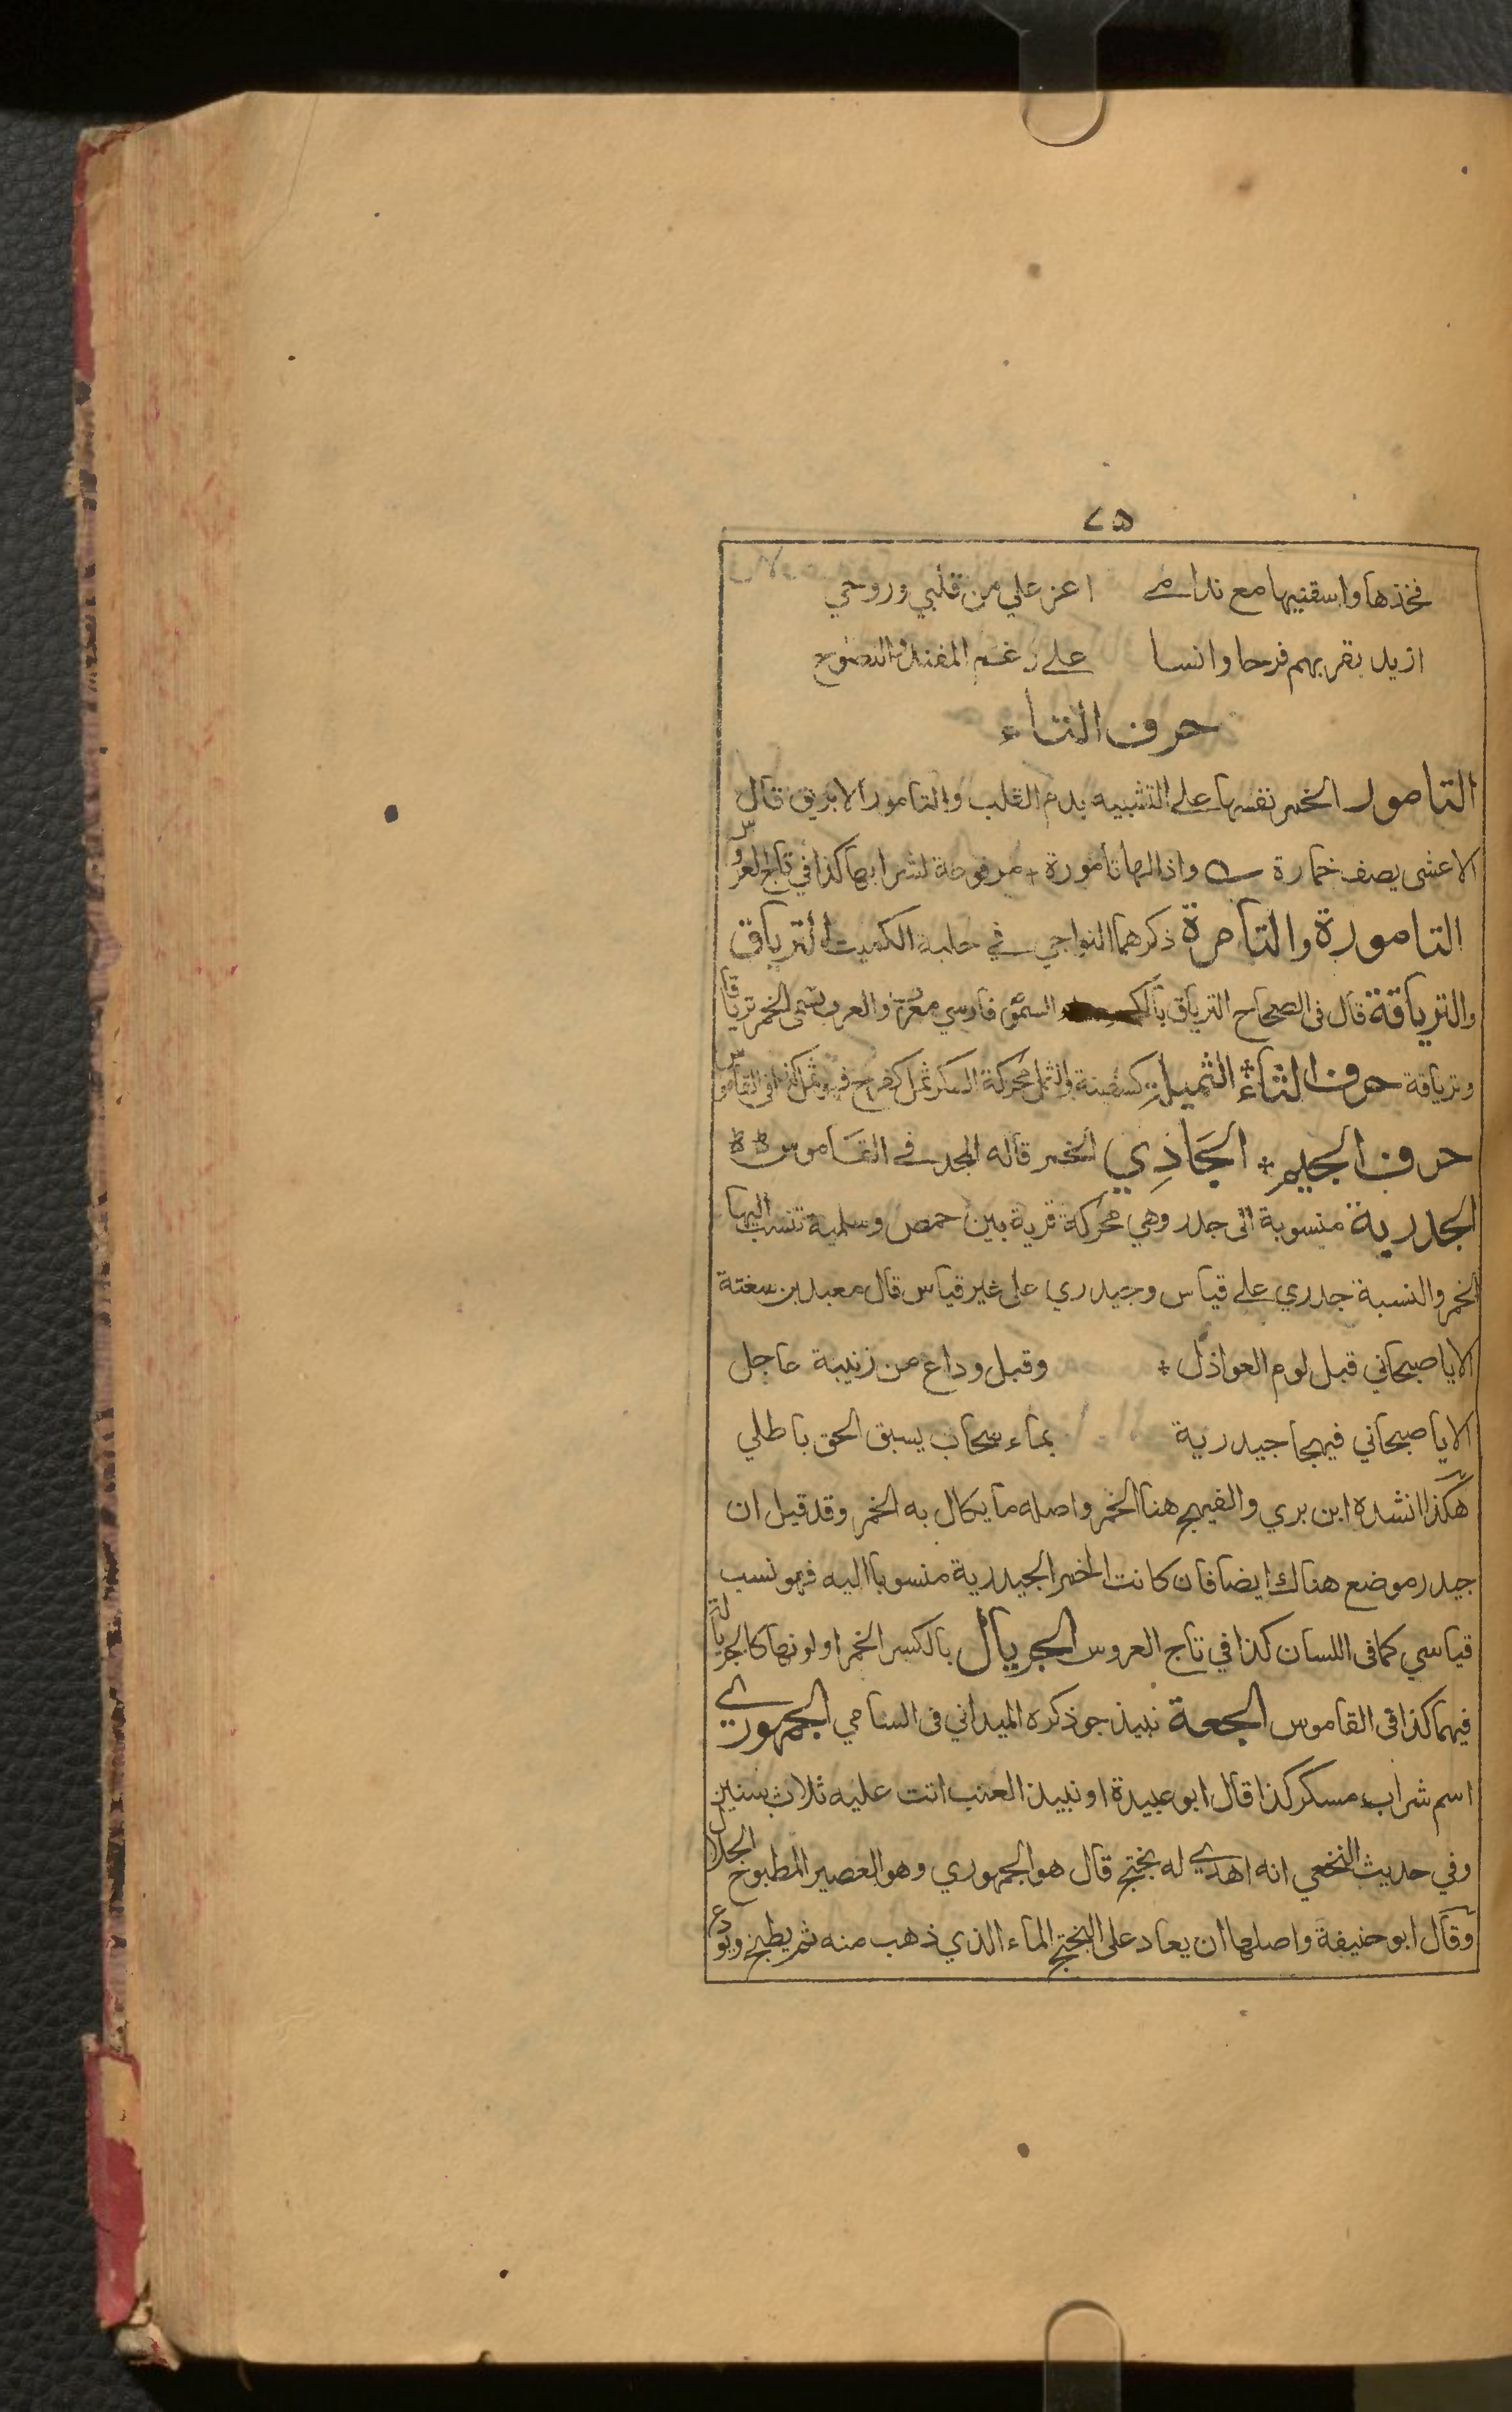 ٢٥
فخذها واسقنيها مع ندامے اعز علي من قلبي وروحي
ازيد بقربهم فرحا وانسا علے رغم المفند والنصوح
حرف التاء
التامور الخمر نفسها علے التشبيه بدم القلب والتامور الابريق قال
الاعشى يصف خمارة واذا لها تامورة + مرفوعة لشرابها كذا في تاج العروس
التامورة والتامرة ذكرهما النواجي في حلبة الكميت الترياق
والترياقة قال فى الصحاح الترياق بالكسر السموم فارسي معرب والعرب تسمى الخمر ترياقا
وترياقة حرف الثاء الثميلة كسفينة والثمل محركة السكر ثمل كفرح فهو ثمل كذا فى القاموس
حرف الجيم + الجَاذِي الخمر قاله المجد في القاموس
الجدرية منسوبة الى جدر وهي محركة قرية بين حمص وسلمية تنسب اليها
الخمر والنسبة جدري علے قياس وجيدري على غير قياس قال معبد بن سعنة
الا يا صبحاني قبل لوم العواذل + وقبل وداع من زنيبة عاجل
الا يا صبحاني فيهجا جيدرية بماء سحاب يسبق الحق باطلي
هكذا انشده ابن بري والفيهج هنا الخمر واصله ما يكال به الخمر وقد قيل ان
جيدر موضع هناك ايضا فان كانت الخمر الجيدرية منسوبا اليه فهو نسب
قياسي كما فى اللسان كذا في تاج العروس الجريال بالكسر الخمر او لونها كالجريالة
فيهما كذا في القاموس الجعة نبيذ جو ذكره الميداني فى السامي الجمهوري
اسم شراب مسكر كذا قال ابو عبيدة او نبيذ العنب اتت عليه ثلاث سنين
وفي حديث النخعي انه اهدے له بختج قال هو الجمهوري وهو العصير المطبوخ الحلال
وقال ابو حنيفة واصلها ان يعاد على البختج الماء الذي ذهب منه ثم يطبخ ويودع